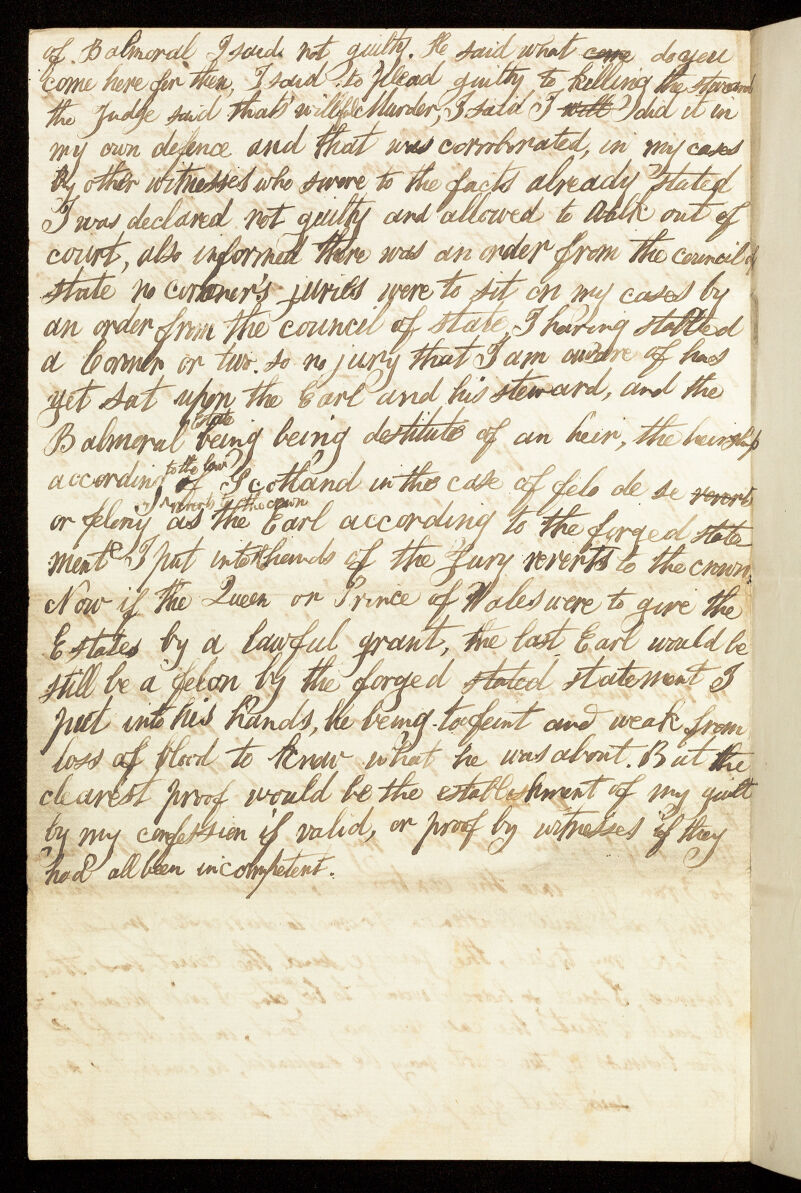 of Balmoral I said not guilty. He said what come do you
come here for then, I said to plead guilty to killing the steward
the Judge said thats willful Murder, I said I will I did it in
my own defence and that was corroborated, in my cases
by other witnesses who swore to the facts already stated
I was declared not guilty and allowed to walk out of
court, also informed there was an order from the council of
state no coroner's juries were to sit on my cases by
an order from the council of state, I having stabbed
a Coroner or two. so no jury that I am aware of has
yet sat upon the Earl and his steward, and the
Balmoral estate being being destitute of an heir, the heirship
according to the law of Scotland in the case of felo de se revert
or felony reverts to the crown as the Earl according to the forged state
ment I put into hands of the Jury reverts to the crown.
Now if the Queen or Prince of Wales were to give the
Estates by a lawful grant, the last Earl would be
still be a felon by the forged stated statement I
put into his hands, he being to feint and weak from
loss of blood to know what he was about. But the
clearest proof would be the establishment of my guilt
by my confession if valid, or proof by witnesses if they
had all been incompetent.